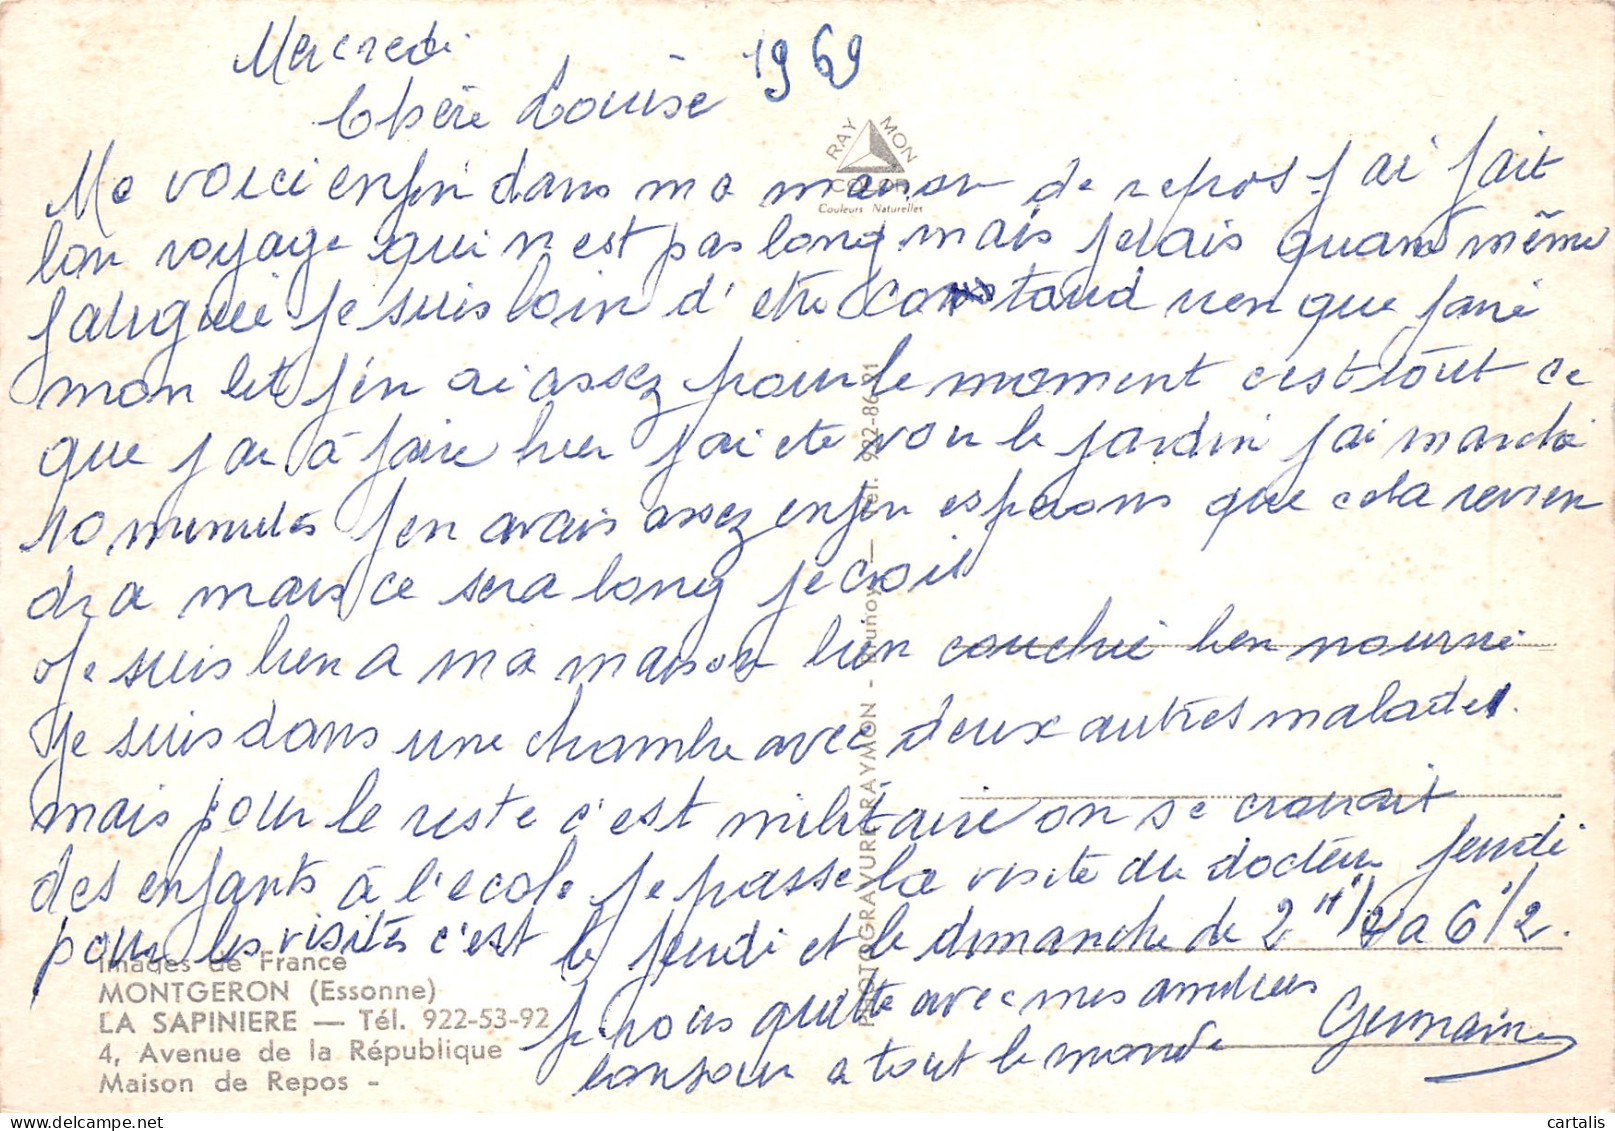 Mercredi
1969
Chère Louise
Me voici enfin dans ma maison de repos j'ai fait
bon voyage qui n'est pas long mais j'étais quand même
fatiguée je suis loin d'etre costaud rien que faire
mon lit j'en ai assez pour le moment c'est tout ce
que j'ai à faire hier j'ai ete voir le jardin j'ai marché
10 minutes j'en avais assez enfin esperons que cela revien
dra mais ce sera long je crois
Je suis bien a ma maison bien couchée bien nourrie
Je suis dans une chambre avec deux autres malades.
mais pour le reste c'est militaire on se croirait
des enfants à l'ecole je passe la visite du docteur jeudi
pour les visites c'est le jeudi et le dimanche de 2 H 1/2 a 6 1/2.
je vous quitte avec mes amitiées
bonjour a tout le monde Germaine
RAYMON
COLOR
Couleurs Naturelles
PHOTOGRAVURE RAYMON - Brunoy — Tél. 922-86-91
Images de France
MONTGERON (Essonne)
LA SAPINIERE — Tél. 922-53-92
4, Avenue de la République
Maison de Repos -
cartalis